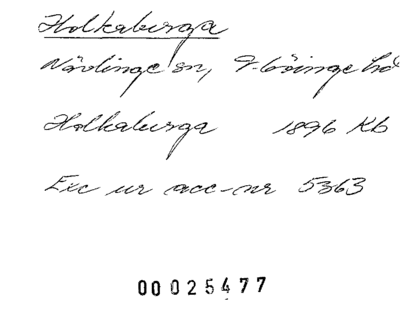 Holkaberga
Nävlinge sn, V. Göinge hd
Holkaberga 1896 Kb
Exc ur acc-nr 5363
00025477